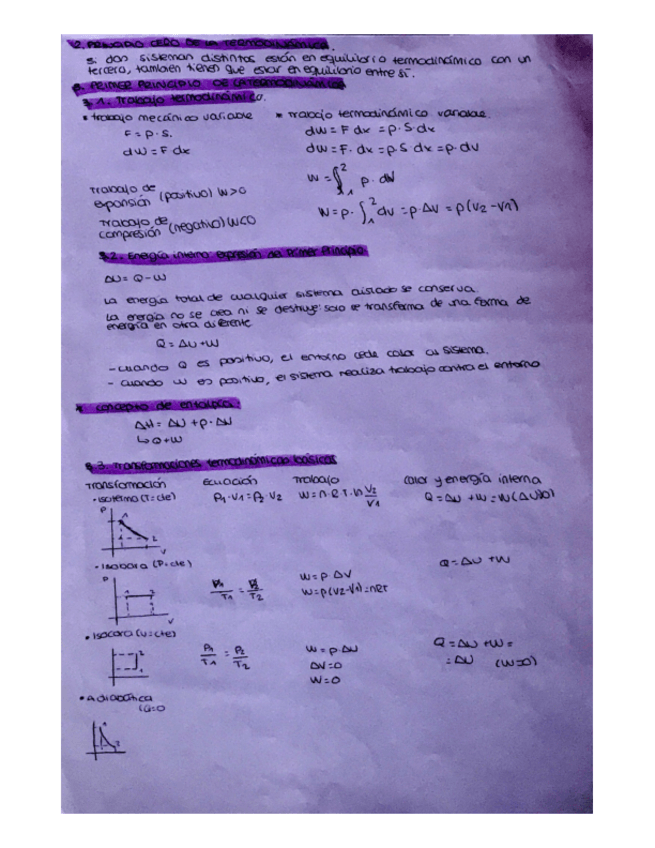 2. PRINCIPIO CERO DE LA TERMODINÁMICA.
Si dos sistemas distintos están en equilibrio termodinámico con un
tercero, tambien tienen que estar en equilibrio entre sí.
3. PRIMER PRINCIPIO DE LA TERMODINÁMICA
3.1. Trabajo termodinámico.
• trabajo mecánico variable
F = p · S.
dW = F dx
• Trabajo termodinámico variable.
dW = F dx = p · S · dx
dW = F · dx = p · S dx = p · dV
W = ∫₁² p · dV
W = p · ∫₁² dV = p · ΔV = p(V2 - V1)
Trabajo de expansión (positivo) W>0
Trabajo de compresión (negativo) W<0
3.2. Energía interna: expresión de Primer Principio
ΔU = Q - W
La energía total de cualquier sistema aislado se conserva.
La energía no se crea ni se destruye: solo se transforma de una forma de
energía en otra diferente
Q = ΔU + W
- cuando Q es positivo, el entorno cede calor al sistema.
- cuando W es positivo, el sistema realiza trabajo contra el entorno
* concepto de entalpía
ΔH = ΔU + p · ΔV
↳ Q + W
3.3. Transformaciones termodinámicas básicas
Transformación Ecuación Trabajo Calor y energía interna
• isoterma (T = cte) P1 · V1 = P2 · V2 W = n · R · T · ln V2/V1 Q = ΔU + W = W (ΔU=0)
P 1 2 V
• Isobara (P = cte) V1/T1 = V2/T2 W = p · ΔV Q = ΔU + W
W = p(V2 - V1) = nRT
P 1 2 V
• Isócora (V = cte) P1/T1 = P2/T2 W = p · ΔV Q = ΔU + W =
ΔV = 0 = ΔU (W=0)
W = 0
2
1
• Adiabática
Q = 0
1
2